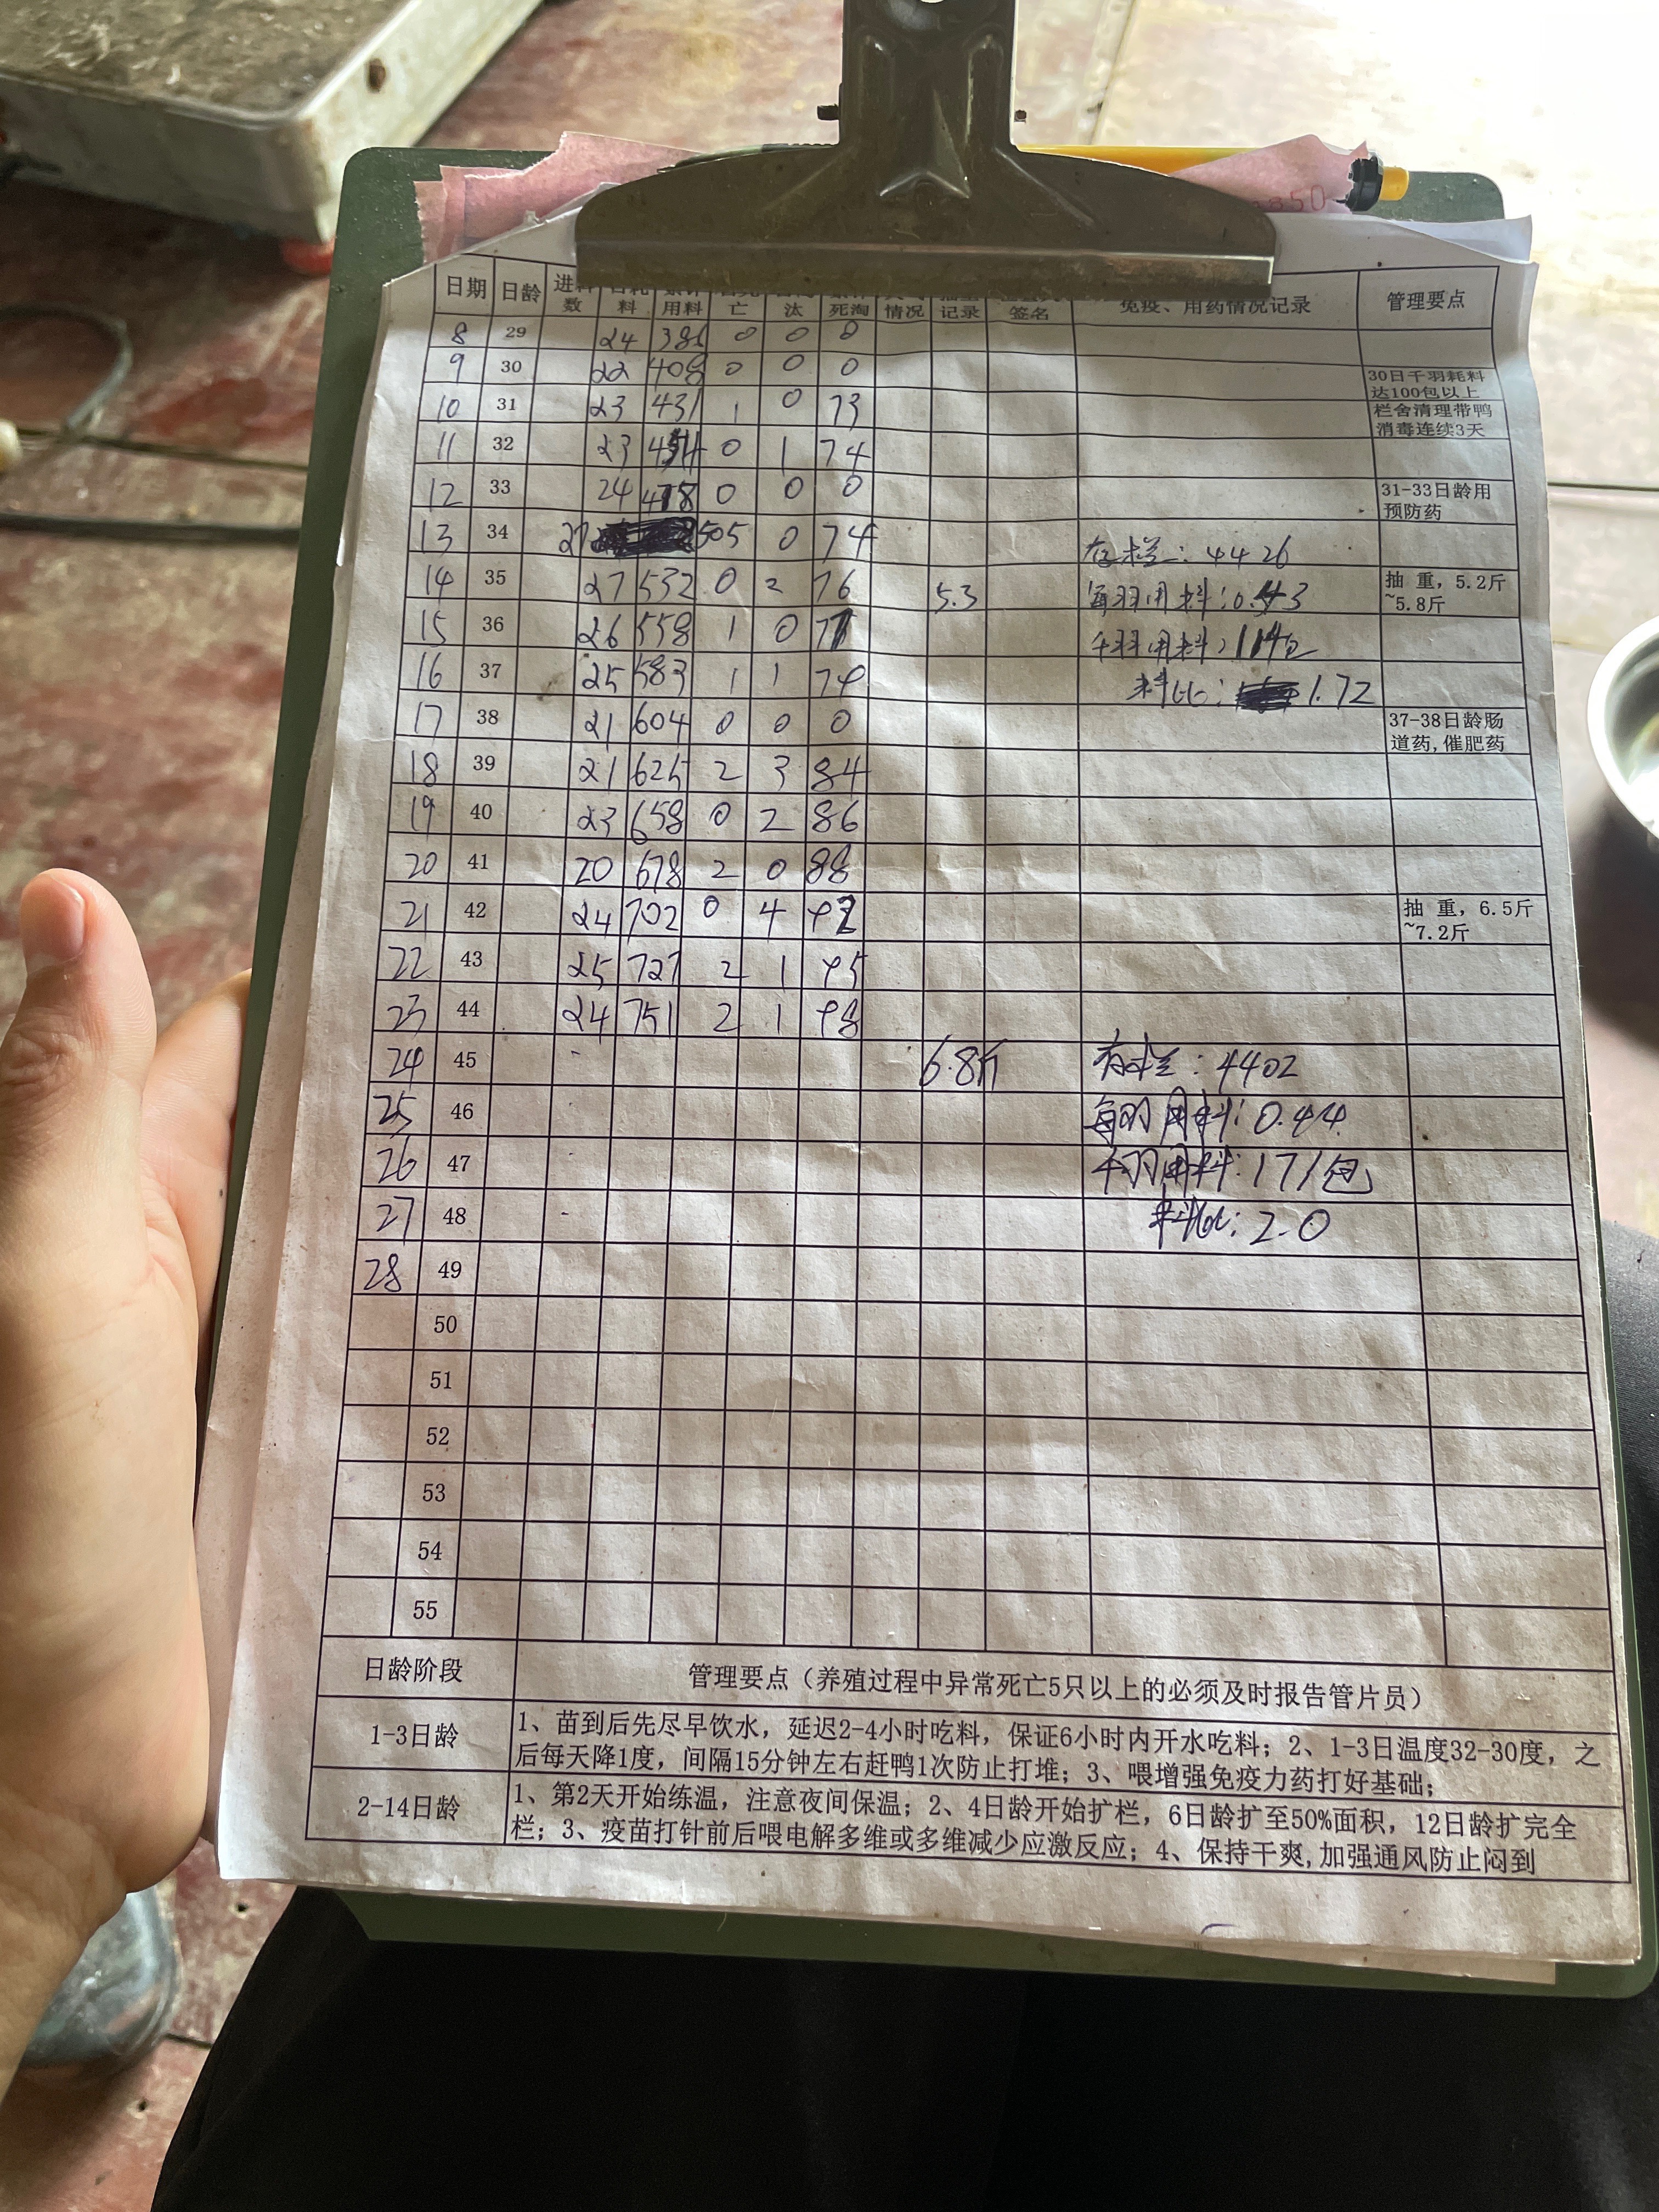 850
日期 日龄 进料数 日耗料 累计用料 亡 汰 死淘 情况 记录 签名 免疫、用药情况记录 管理要点
8 29 24 386 0 0 0
9 30 22 408 0 0 0 30日千羽耗料达100包以上
10 31 23 431 1 0 73 栏舍清理带鸭消毒连续3天
11 32 23 454 0 1 74
12 33 24 478 0 0 0 31-33日龄用预防药
13 34 27 505 0 74 存栏: 4426
14 35 27 532 0 2 76 5.3 每羽用料:0.43 抽 重, 5.2斤~5.8斤
15 36 26 558 1 0 77 千羽用料:114包
16 37 25 583 1 1 79 料比: 1.72
17 38 21 604 0 0 0 37-38日龄肠道药,催肥药
18 39 21 625 2 3 84
19 40 23 658 0 2 86
20 41 20 678 2 0 88
21 42 24 702 0 4 92 抽 重, 6.5斤~7.2斤
22 43 25 727 2 1 95
23 44 24 751 2 1 98
24 45 6.8斤 存栏: 4402
25 46 每羽用料: 0.44
26 47 千羽用料: 171包
27 48 料比: 2.0
28 49
50
51
52
53
54
55
日龄阶段 管理要点（养殖过程中异常死亡5只以上的必须及时报告管片员）
1-3日龄 1、苗到后先尽早饮水，延迟2-4小时吃料，保证6小时内开水吃料；2、1-3日温度32-30度，之
后每天降1度，间隔15分钟左右赶鸭1次防止打堆；3、喂增强免疫力药打好基础；
2-14日龄 1、第2天开始练温，注意夜间保温；2、4日龄开始扩栏，6日龄扩至50%面积，12日龄扩完全
栏；3、疫苗打针前后喂电解多维或多维减少应激反应；4、保持干爽,加强通风防止闷到